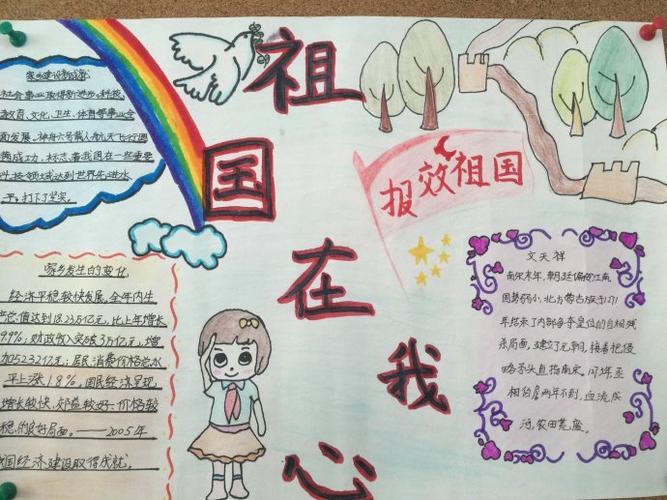 祖
国
在
我
心
报效祖国
社会事业取得新进步,科技、
教育、文化、卫生、体育等事业全
面发展。神舟六号载人航天飞行圆
满成功,标志着我国在一些重要
科技领域达到世界先进水
家乡发生的变化
经济平稳较快发展。全年内生
产总值达到18.23万亿元,比上年增长
9.9%;财政收入突破3万亿元,增
加5232亿元;居民消费价格总水
平上涨1.8%。国民经济呈现
增长较快、效益较好、价格较
稳的良好局面。——2005年
我国经济建设取得成就。
文天祥
南宋末年,朝廷偏安江南,
国势弱小,北方蒙古族于1271
年结束了内部争夺皇位的自相残
杀局面,建立了元朝,接着把侵
略矛头直指南宋。
相但房两年不到,血流成
河,农田荒芜。